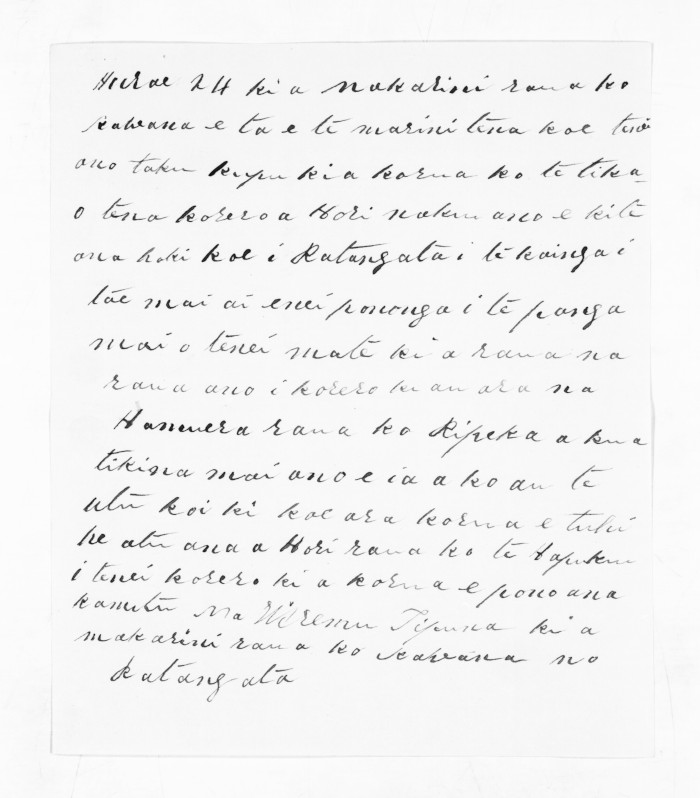 Hurae 24 ki a makarini raua ko
kawana e ta e te marini tena koe tenei
ano taku kupu ki a korua ko te tika
o tena korero a Hori naku ano e kite
ana hoki koe i Ratangata i te kainga i
tae mai ai enei pononga i te panga
mai o tenei mate ki a raua na
raua ano i korero ki au ara na
Hamuera raua ko Ripeka a kua
tikina mai ano e ia a ko au te
utu koi ki koe ara korua e tuhi
he atu ana a Hori raua ko te Hapuku
i tenei korero ki a korua e pono ana
ka mutu Na Wiremu Tipuna ki a
makarini raua ko kawana no
Ratangata